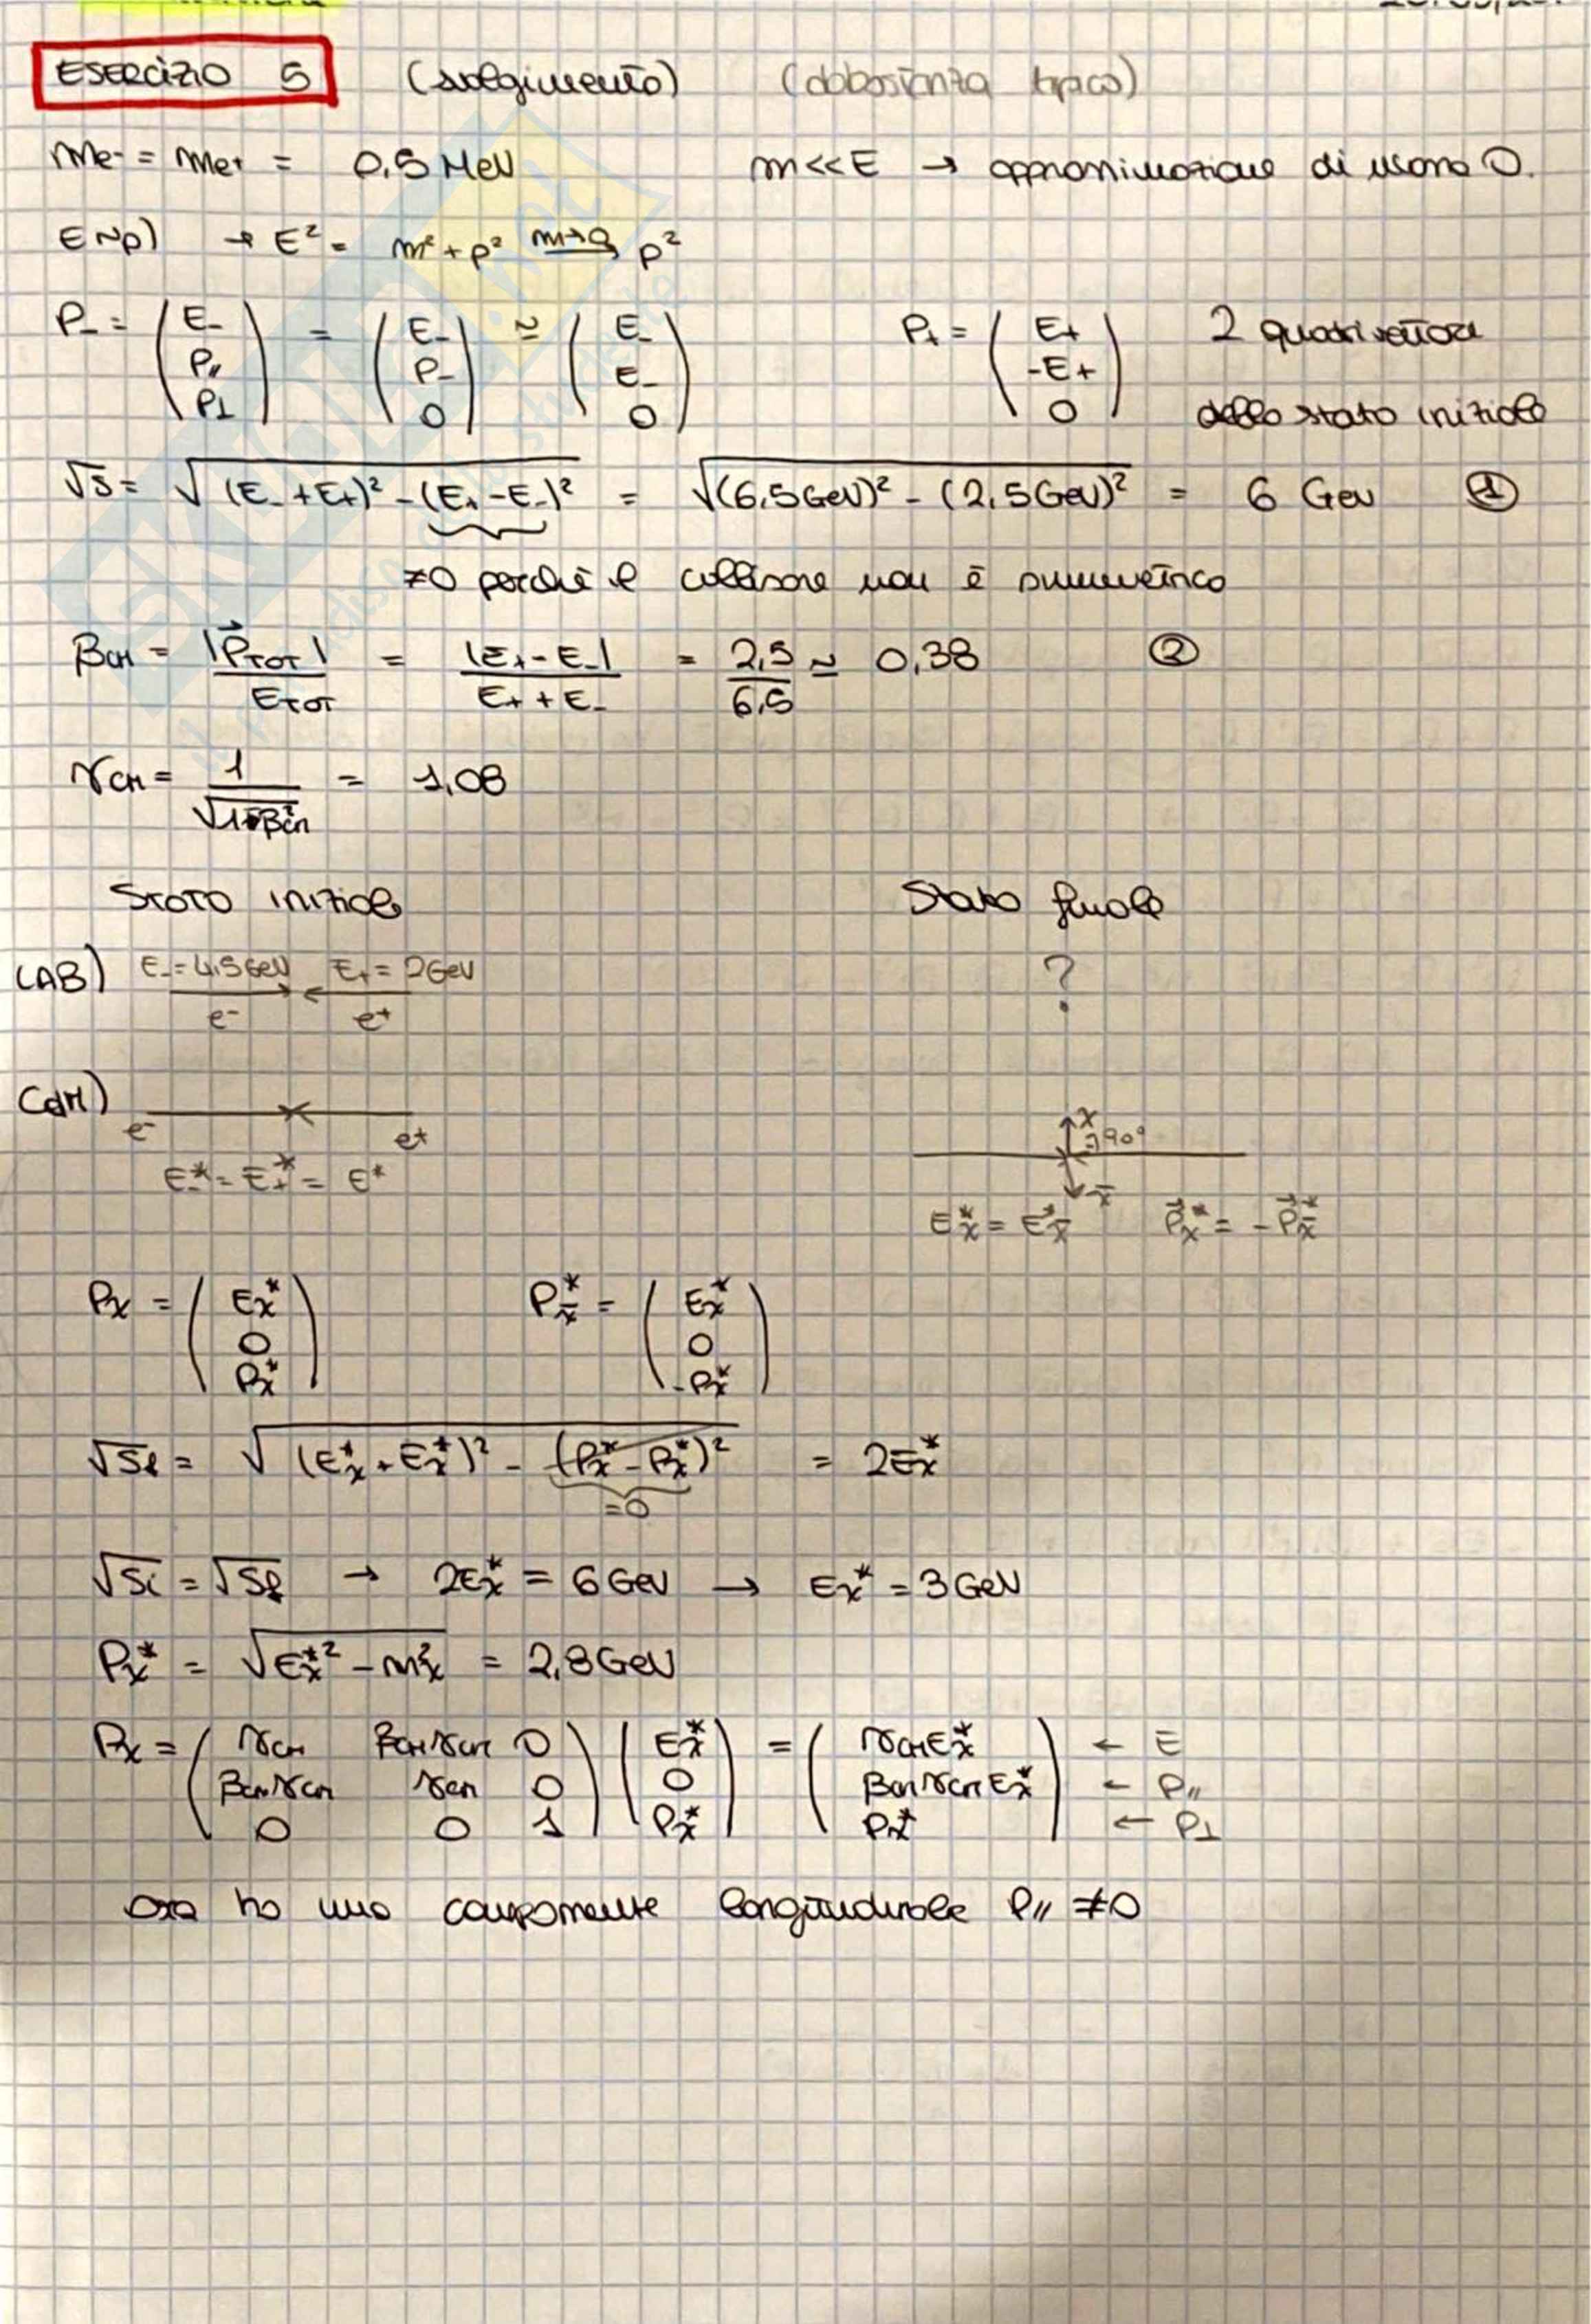 ESERCIZIO 5 (svolgimento) (abbastanza tipico)
me- = me+ = 0,5 MeV m<<E → approssimazione di usare 0.
E~p) → E² = m²+p² m→0 p²
P- = (E- P// P⊥) = (E- P- 0) ≃ (E- E- 0) P+ = (E+ -E+ 0) 2 quadrivettori
dello stato iniziale
√s = √(E- + E+)² - (E+ - E-)² = √(6,5GeV)² - (2,5GeV)² = 6 GeV ①
≠0 perché il collisore non è simmetrico
βCM = |P⃗TOT| / ETOT = |E+ - E-| / E+ + E- = 2,5 / 6,5 ≃ 0,38 ②
γCM = 1 / √1-β²CM = 1,08
Stato iniziale Stato finale
LAB) E- = 4,5GeV E+ = 2GeV ?
e- e+
CdM) e- e+ x 90° x̄
E-* = E+* = E* Ex* = Ex̄* P⃗x* = -P⃗x̄*
Px = (Ex* 0 Px*) Px̄* = (Ex* 0 -Px*)
√sf = √(Ex* + Ex*)² - (Px* - Px*)² = 2Ex*
=0
√si = √sf → 2Ex* = 6GeV → Ex* = 3GeV
Px* = √Ex*² - m²x = 2,8GeV
Px = (γCM βCMγCM 0 βCMγCM γCM 0 0 0 1) (Ex* 0 Px*) = (γCMEx* βCMγCMEx* Px*) ← E ← P// ← P⊥
ora ho una componente longitudinale P// ≠0